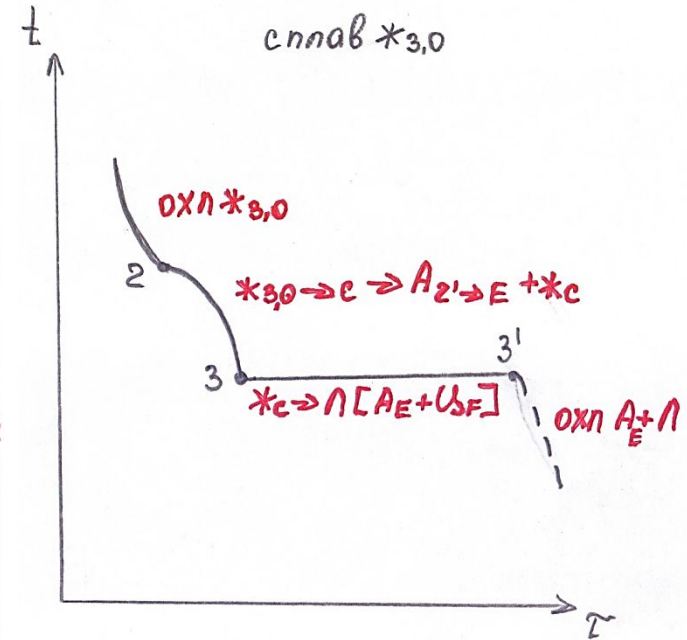 t
сплав *3,0
охл *3,0
2
*3,0→C → A2'→E + *C
3
3'
*C→Л[AE+ЦF]
охл AE+Л
τ